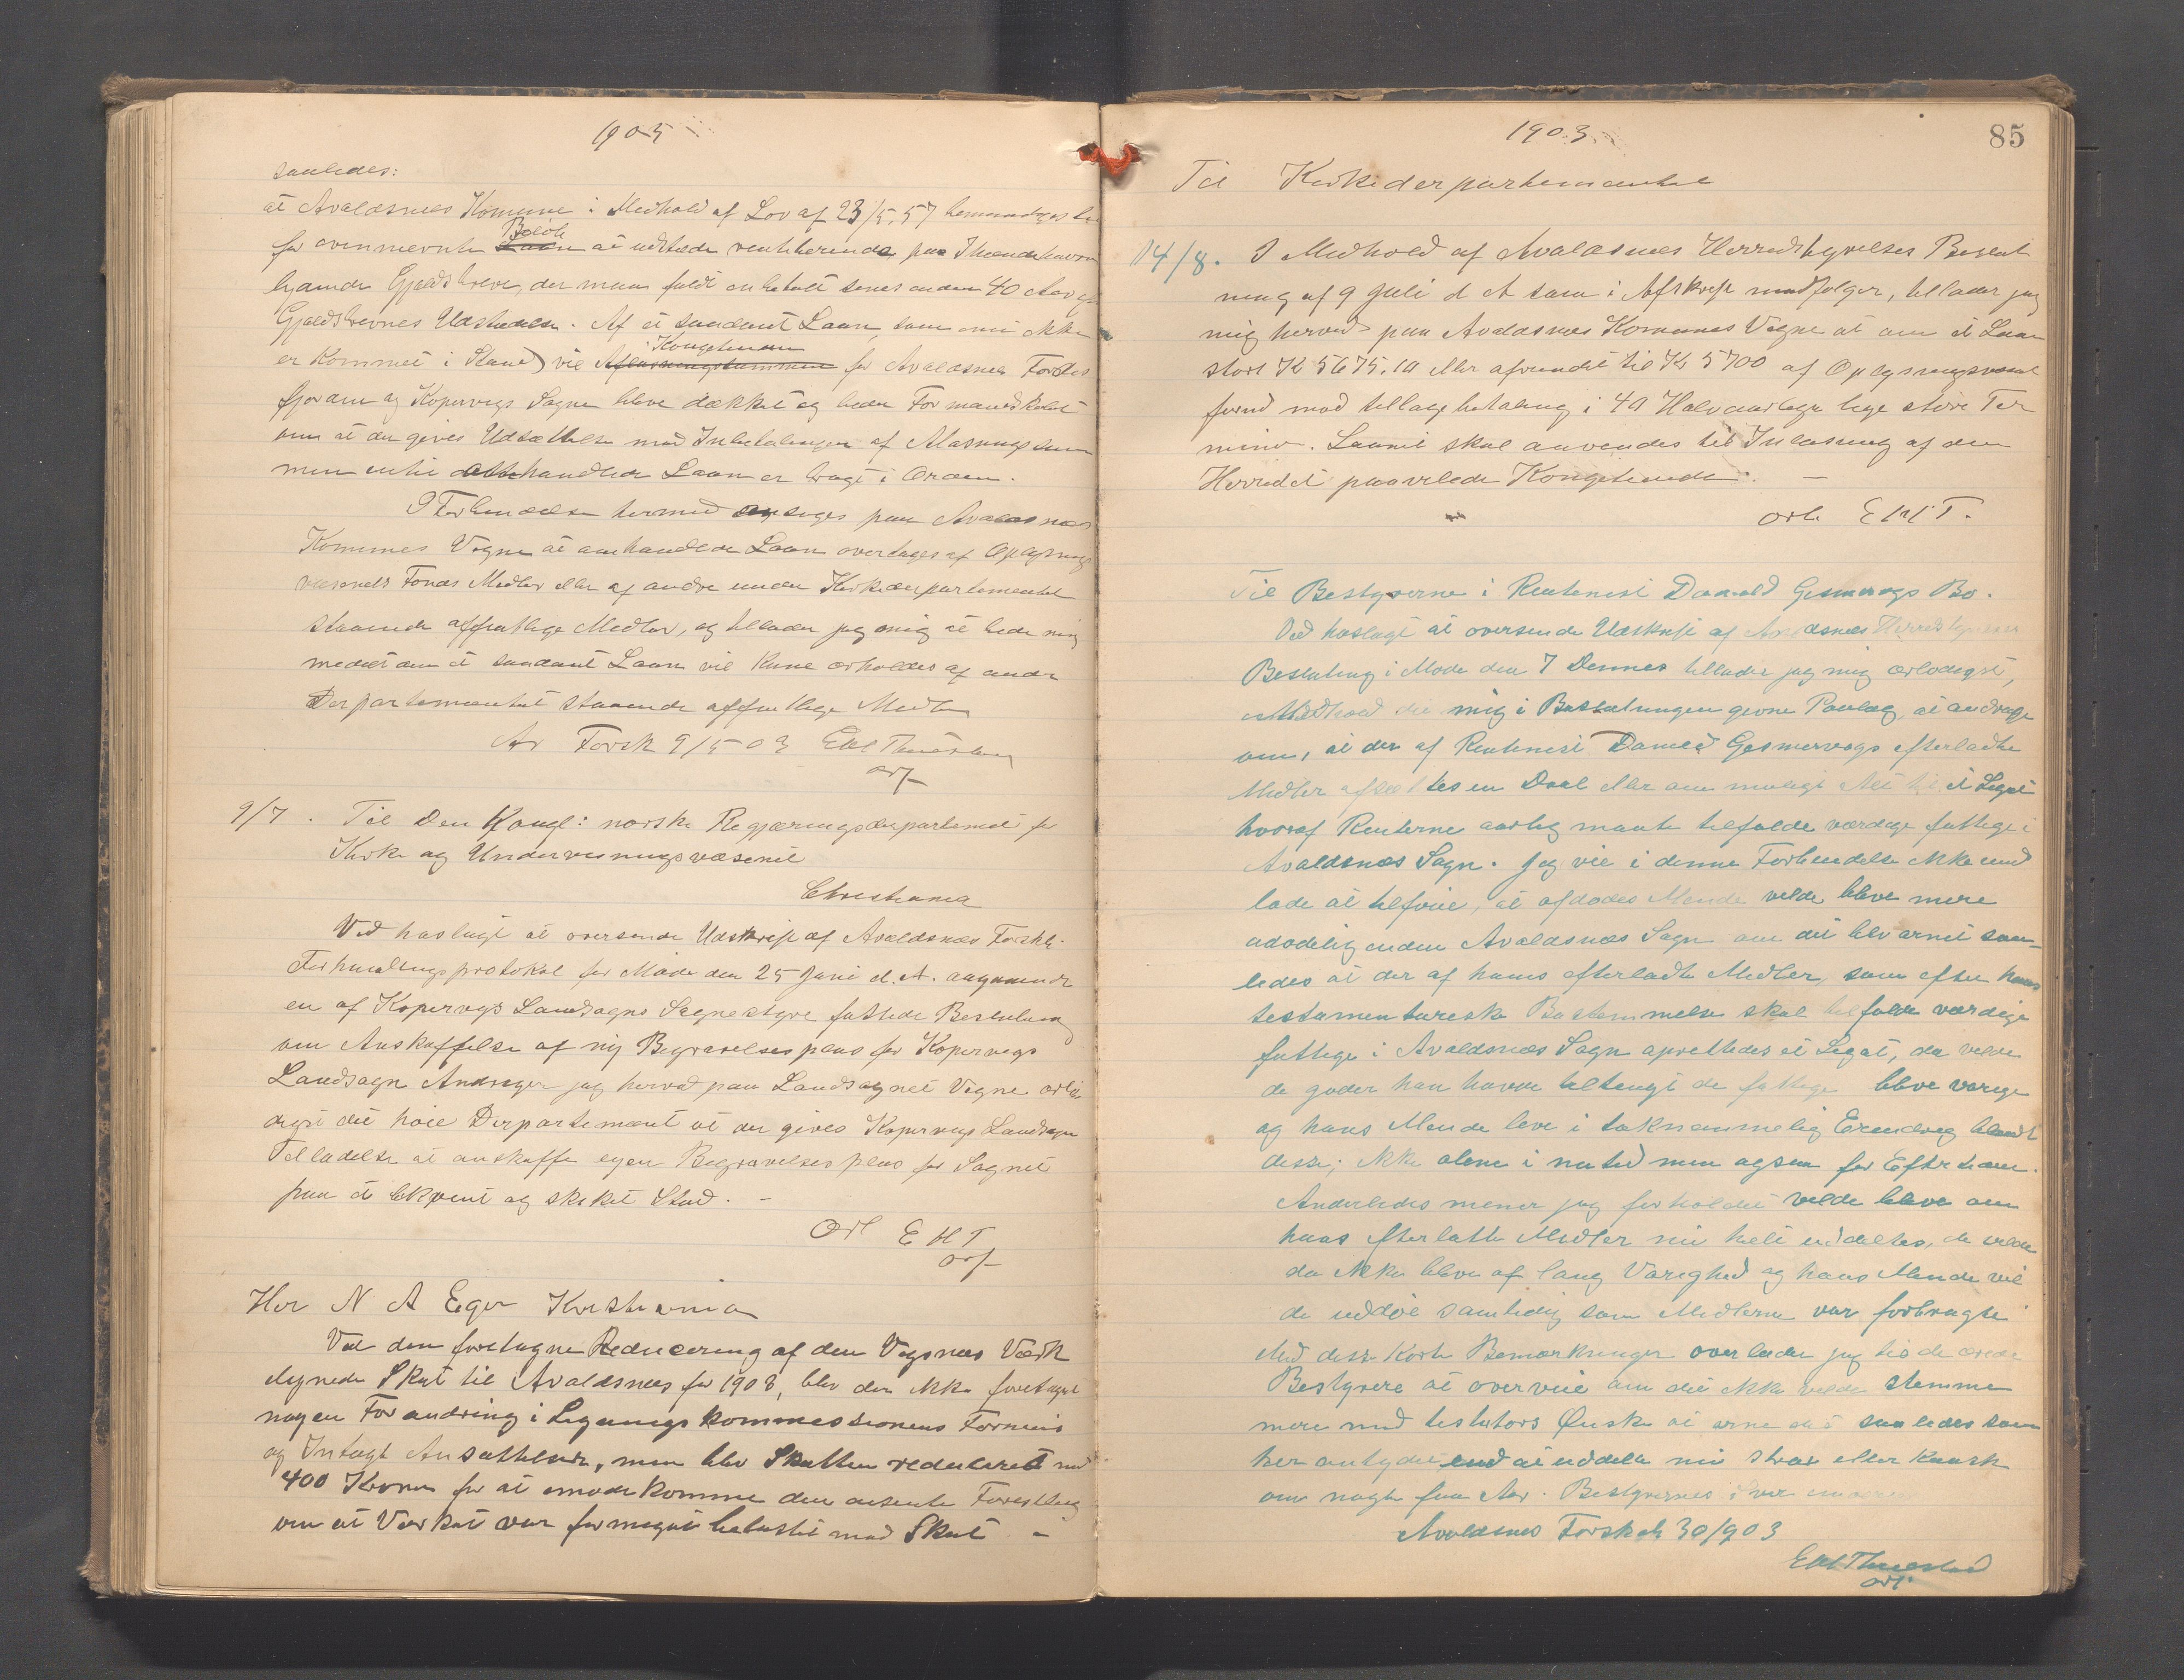 1903
saaledes:
at Avaldsnes Komune i Medhold af Lov af 23/5.57 bemyndiges
for ovennævnte Beløb at udstede rentebærende paa Ihændehaveren
lydende Gjældsbreve, der maa fuldt indbetalt senest inden 40 Aar af
Gjældsbrevnes Udstedelse. Af et saadant Laan, som nu ikke
er kommet i Stand, vil Kongetienden for Avaldsnes Førdes
fjorden og Kopervigs Sogne blive dækket og beder Formandskabet
om at der gives Udsættelse med Indbetalingen af Afløsningssum
men indtil omhandlede Laan er bragt i Orden.
I Forbindelse hermed ansøges paa Avaldsnes
Komunes Vegne at omhandlede Laan overtages af Oplysnings
væsenets Fonds Midler eller af andre under Kirkedepartementet
staaende offentlige Midler, og tillader jeg mig at bede mig
meddelt om et saadant Laan vil kune erholdes af andre
Departementet staaende offentlige Midler
Av Forsk 9/5 03 E H Thuestad
orf
9/7. Til Den Kongl: norske Regjeringsdepartement for
Kirke og Undervisningsvæsenet
Christiania
Ved hoslagt at oversende Udskrift af Avaldsnæs Forskb.
Forhandlingsprotokol for Møde den 25 Juni d. A. angaaende
en af Kopervigs Landsogns Sognestyre fattede Beslutning
om Anskaffelse af ny Begravelsesplads for Kopervigs
Landsogn Andrager jeg herved paa Landsognets Vegne ærbø
digst det høie Departement at der gives Kopervigs Landsogn
Tilladelse at anskaffe egen Begravelsesplads for Sognet
paa et bekvemt og skiket Sted. -
Ærb E H T
orf
Her N A Eger Kristiania
Ved den foretagne Reducering af den Vigsnes Værk
ilignede Skat til Avaldsnes for 1903, blev der ikke foretaget
nogen Forandring i Ligningskommissionens Formues
og Indtægts Ansættelser, men blev Skatten reduceret med
400 Kroner for at imødekomme den Forestilling
om at Værket var formeget belastet med Skat. -
1903
85
Til Kirkedepartementet
14/8. I Medhold af Avaldsnes Herredsstyrelses Beslut
ning af 9 Juli d A som i Afskrift medfølger, tillader jeg
mig herved paa Avaldsnes Komunes Vegne at om et Laan
stort Kr 5675.10 eller afrundet til Kr 5700 af Oplysningsvæsenets
fond mod tilbagebetaling i 40 Halvaarlige lige store Ter
miner. Laanet skal anvendes til Indløsning af den
Herredet paahvilede Kongetiende. -
ærb E H T.
Til Bestyrerne i Rentenist Gismervigs Bo.
Ved hoslagt at oversende Udskrift af Avaldsnes Herredsstyrelses
Beslutning i Møde den 7 Dennes tillader jeg mig ærbødigst,
i Medhold det mig i Beslutningen givne Paalæg, at andrage
om, at der af Rentenist Gismervigs efterladte
Midler afsættes en Deel eller om muligt Alt til et Legat
hvoraf Renterne aarlig maatte tilfalde værdige fattige i
Avaldsnæs Sogn. Jeg vil i denne Forbindelse ikke und
lade at tilføie, at afdødes Minde vilde blive mere
udødelig inden Avaldsnæs Sogn om det blev ordnet saa-
ledes at der af hans efterladte Midler, som efter hans
testamentariske Bestemmelse skal tilfalde værdige
fattige i Avaldsnæs Sogn oprettedes et Legat, da vilde
de goder han havde tiltænkt de fattige blive varige
og hans Minde leve i taknemmelig Erindring blandt
disse, ikke alene i nutid men ogsaa for Eftertiden.
Anderledes mener jeg forholdet vilde blive om
hans efterlatte Midler nu helt uddeltes, de vilde
da ikke blive af lang Varighed og hans Minde vil
de uddøe samtidig som Midlerne var forbrugte
Med disse korte Bemærkninger overlader jeg til de ærede
Bestyrere at overveie om det ikke vilde stemme
mere med testators Ønske at ordne det saaledes som
her antydet end at uddele nu strax eller kansk
om nogle faa Aar. Bestyrernes
Avaldsnes Forskab 30/9 03
E H Thuestad
orf.